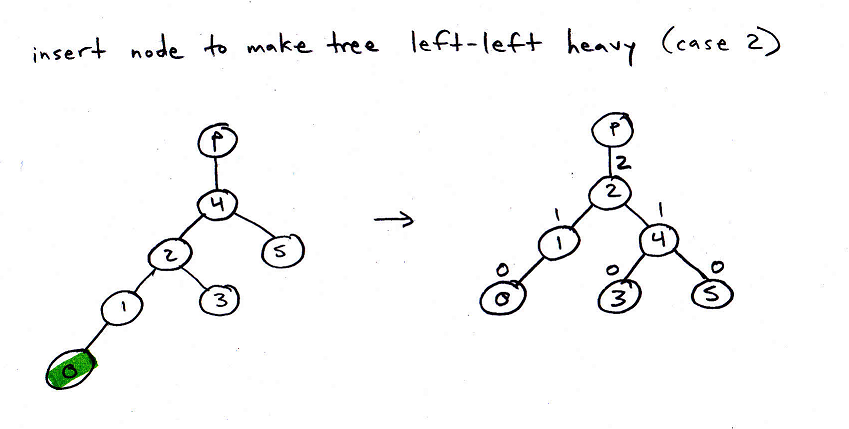 insert node to make tree left-left heavy (case 2)
P
P
2
4
2
2
5
1
1
1
4
1
3
0
0
0
0
3
5
0